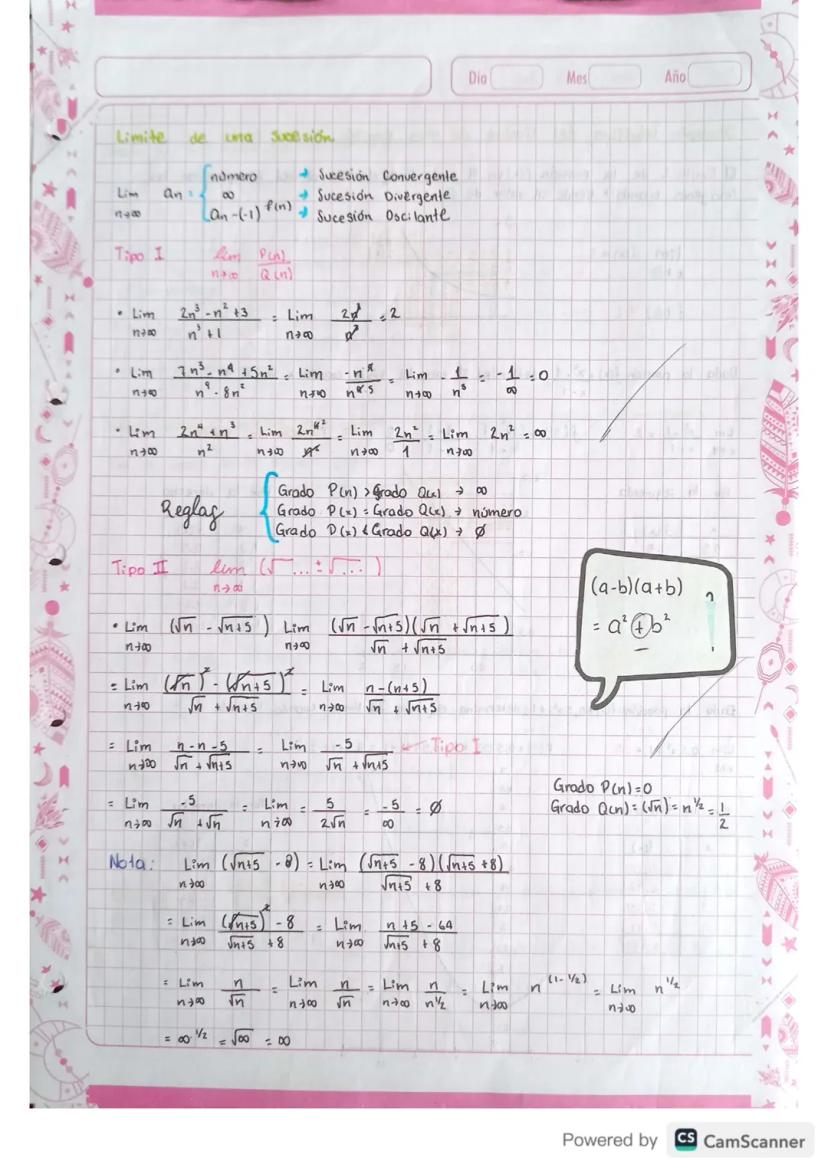 Día Mes Año
Limite de una sucesión
Lim n→∞ an = { número → Sucesión Convergente
∞ → Sucesión Divergente
an -(-1) P(n) → Sucesión Oscilante
Tipo I lim n→∞ P(n)/Q(n)
• Lim n→∞ (2n³ - n² + 3)/(n³ + 1) = Lim n→∞ 2n³/n³ = 2
• Lim n→∞ (7n³ - n⁴ + 5n²)/(n⁹ - 8n²) = Lim n→∞ -n⁴/n⁹ ⁵ = Lim n→∞ - 1/n⁵ = - 1/∞ = 0
• Lim n→∞ (2n⁴ + n³)/n² = Lim n→∞ 2n⁴ ²/n² = Lim n→∞ 2n²/1 = Lim n→∞ 2n² = ∞
Reglas { Grado P(n) > Grado Q(x) → ∞
Grado P(x) = Grado Q(x) → número
Grado P(x) < Grado Q(x) → ∅
Tipo II lim n→∞ (√... ± √...)
(a-b)(a+b)
= a² + b²
• Lim n→∞ (√n - √n+5) Lim n→∞ (√n - √n+5)(√n + √n+5)/(√n + √n+5)
= Lim n→∞ ((√n)² - (√n+5)²)/(√n + √n+5) = Lim n→∞ (n-(n+5))/(√n + √n+5)
= Lim n→∞ (n-n-5)/(√n + √n+5) = Lim n→∞ -5/(√n + √n+5) ← Tipo I
= Lim n→∞ -5/(√n + √n) = Lim n→∞ = 5/(2√n) = -5/∞ = ∅
Grado P(n) = 0
Grado Q(n) = (√n) = n^½ = 1/2
Nota: Lim n→∞ (√n+5 - 8) = Lim n→∞ (√n+5 - 8)(√n+5 + 8)/(√n+5 + 8)
= Lim n→∞ ((√n+5)² - 8)/(√n+5 + 8) = Lim n→∞ (n + 5 - 64)/(√n+5 + 8)
= Lim n→∞ n/√n = Lim n→∞ n/√n = Lim n→∞ n/n^½ = Lim n→∞ n^(1-½) = Lim n→∞ n^½
= ∞^½ = √∞ = ∞
Powered by CS CamScanner